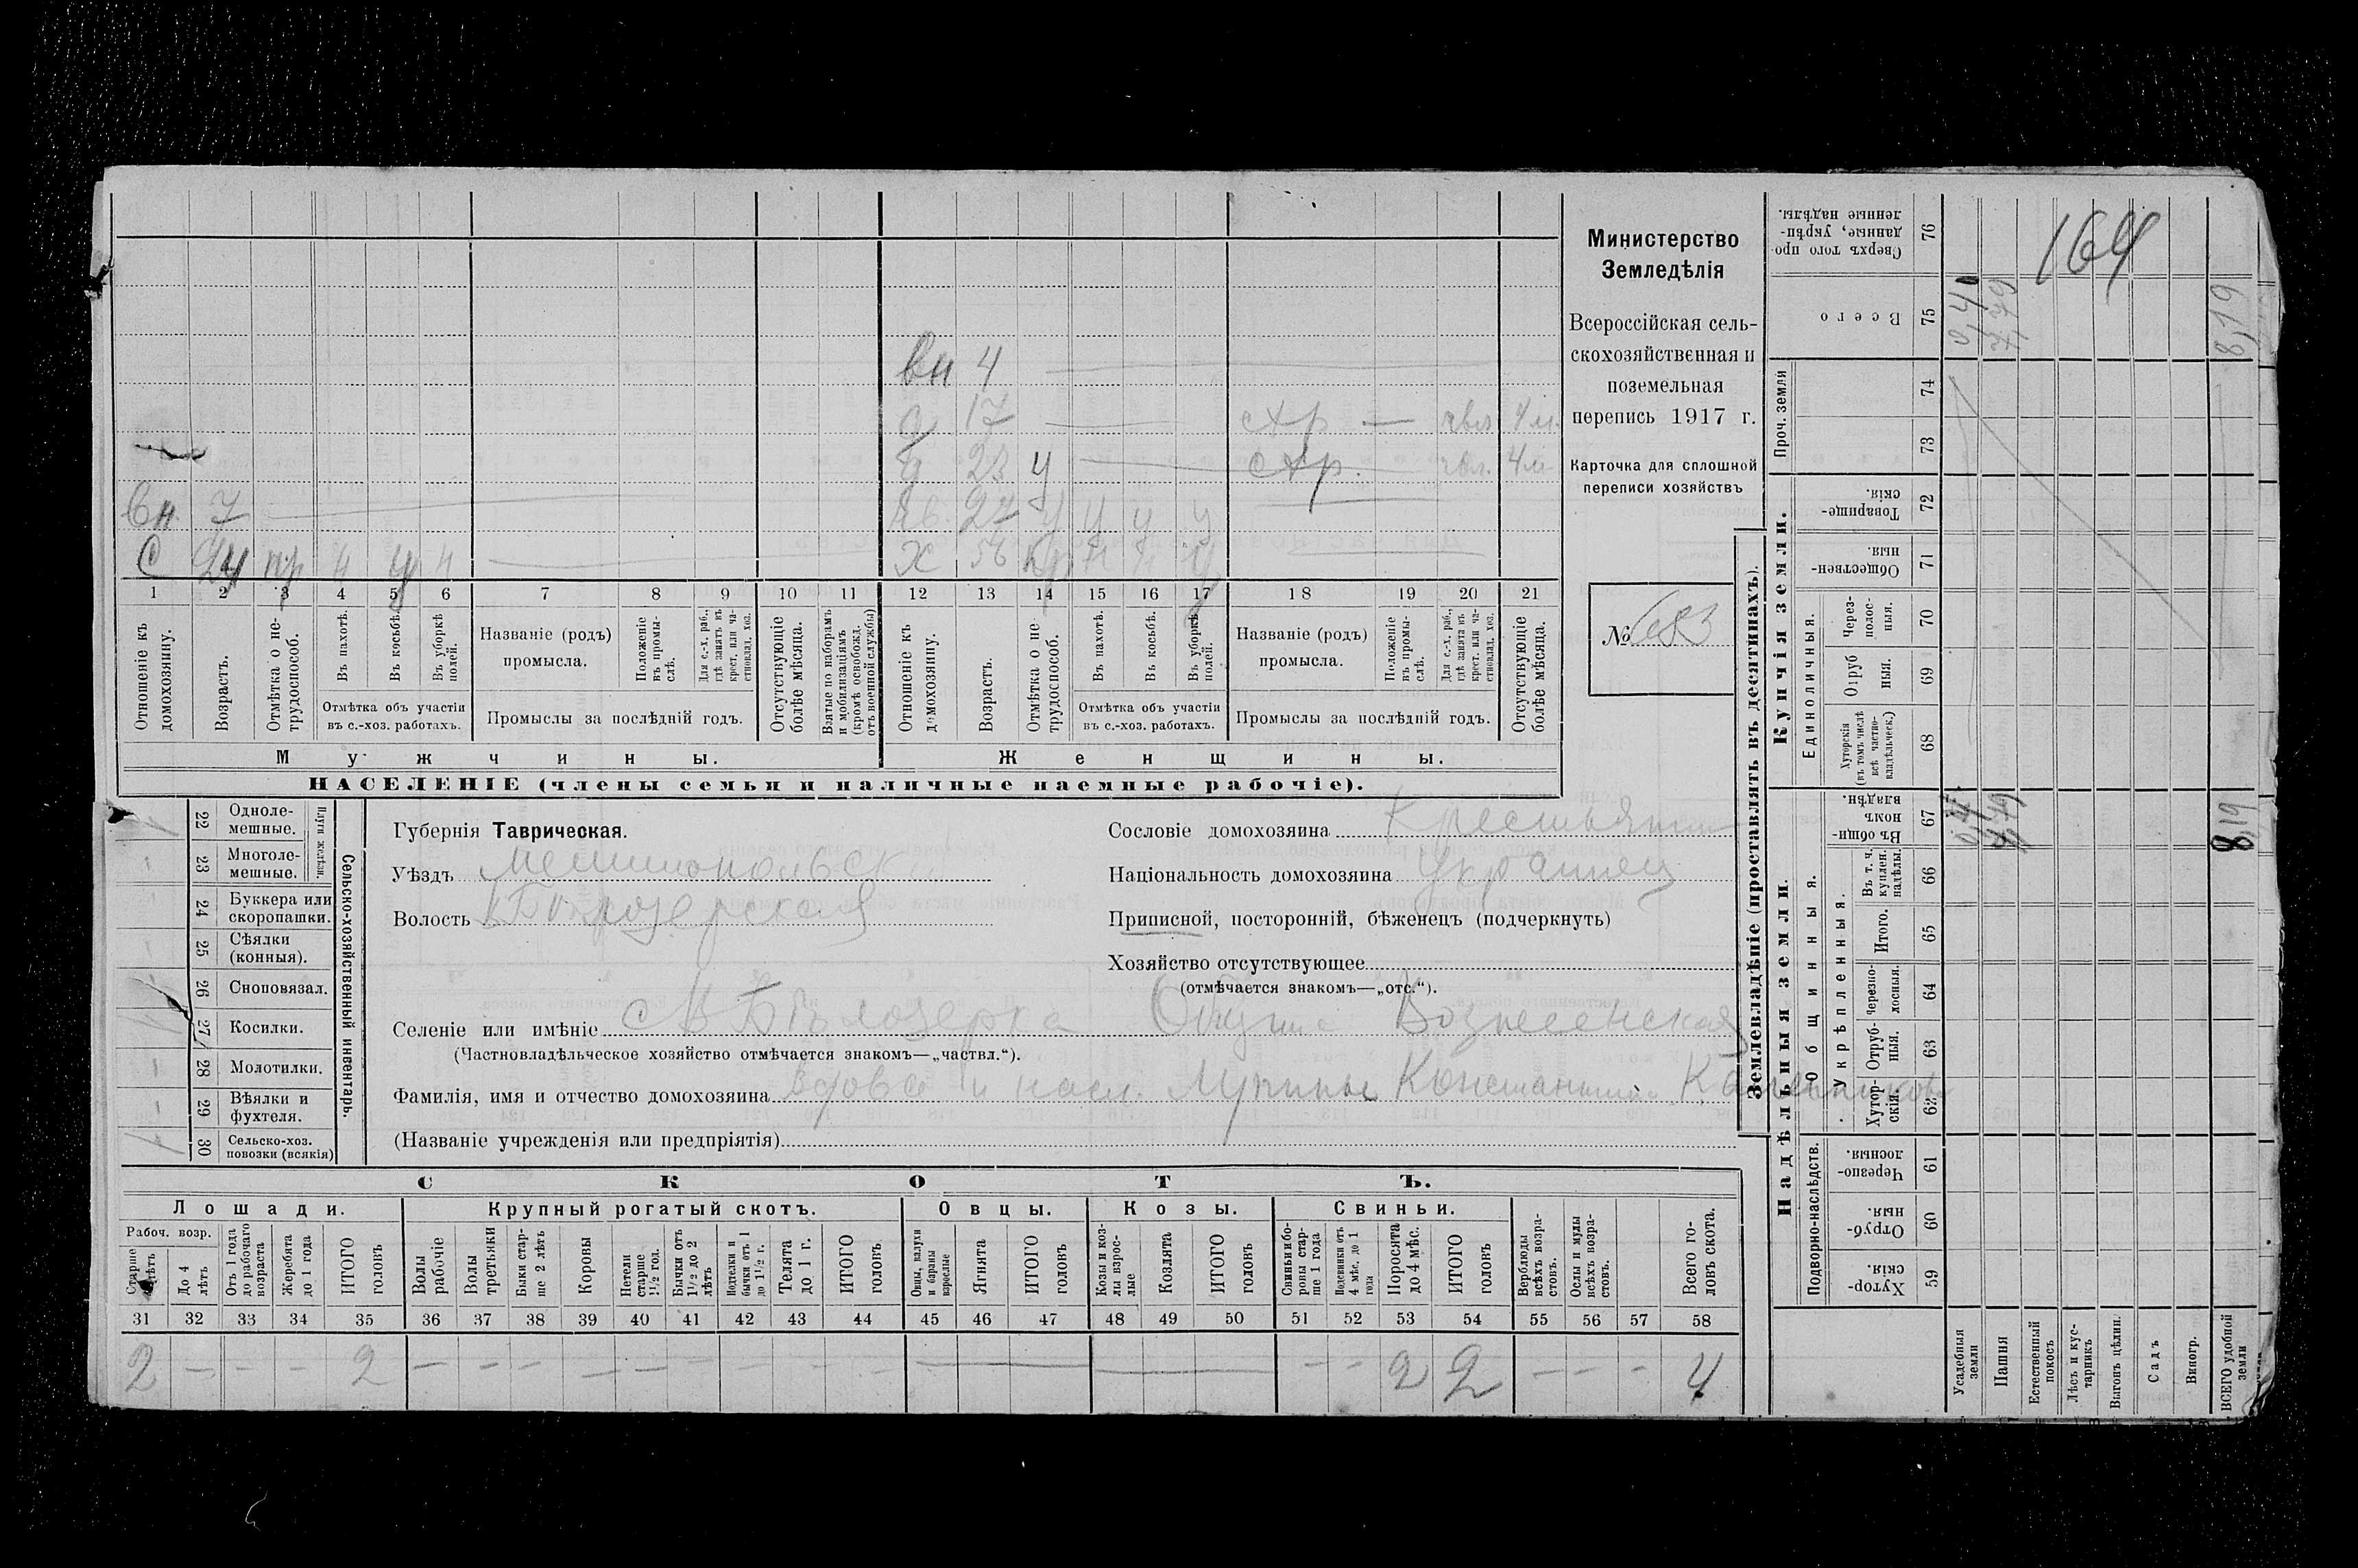 вн 4
д 17 — стр — чвл 4 м.
д 23 ч — стр. чвл. 4 м
Вн. 7
27 ч ч ч ч
С 24 пр ч ч ч
Х 56 пр ч ч ч
1 2 3 4 5 6 7 8 9 10 11 12 13 14 15 16 17 18 19 20 21
Отношеніе къ домохозяину.
Возрастъ.
Отмѣтка о нетрудоспособ.
Въ пахотѣ.
Въ косьбѣ.
Въ уборкѣ полей.
Отмѣтка объ участіи въ с.-хоз. работахъ.
Названіе (родъ) промысла.
Положеніе въ промыслѣ.
Для с.-х. раб., гдѣ занятъ въ крест. или частновлад. хоз.
Промыслы за послѣдній годъ.
Отсутствующіе болѣе мѣсяца.
Взятые по наборамъ и мобилизаціямъ (кромѣ освобожд. отъ военной службы)
Отношеніе къ домохозяину.
Возрастъ.
Отмѣтка о нетрудоспособ.
Въ пахотѣ.
Въ косьбѣ.
Въ уборкѣ полей.
Отмѣтка объ участіи въ с.-хоз. работахъ.
Названіе (родъ) промысла.
Положеніе въ промыслѣ.
Для с.-х. раб., гдѣ занята въ крест. или частновлад. хоз.
Промыслы за послѣдній годъ.
Отсутствующіе болѣе мѣсяца.
Мужчины.
Женщины.
НАСЕЛЕНІЕ (члены семьи и наличные наемные рабочіе).
Министерство
Земледѣлія
Всероссійская сель-
скохозяйственная и
поземельная
перепись 1917 г.
Карточка для сплошной
переписи хозяйствъ
№ 683
22 Одноле-мешные.
23 Многоле-мешные.
Плуги желѣзн.
24 Буккера или скоропашки.
25 Сѣялки (конныя).
26 Сноповязал.
27 Косилки.
28 Молотилки.
29 Вѣялки и фухтеля.
30 Сельско-хоз. повозки (всякія)
Сельско-хозяйственный инвентарь.
Губернія Таврическая.
Уѣздъ Мелитопольск
Волость
Сословіе домохозяина Крестьянин
Національность домохозяина Украинец
Приписной, посторонній, бѣженецъ (подчеркнуть)
Хозяйство отсутствующее
(отмѣчается знакомъ—„отс.“).
Селеніе или имѣніе с В Бѣлозерка Общ. Вознесенская
(Частновладѣльческое хозяйство отмѣчается знакомъ—„частвл.“).
Фамилія, имя и отчество домохозяина вдова и насл.
(Названіе учрежденія или предпріятія)
СКОТЪ.
Лошади. Крупный рогатый скотъ. Овцы. Козы. Свиньи.
Рабоч. возр.
Старше лѣтъ
До 4 лѣтъ
Отъ 1 года до рабочаго возраста
Жеребята до 1 года
ИТОГО головъ
Волы рабочіе
Волы третьяки
Быки старше 2 лѣтъ
Коровы
Нетели старше 1½ год.
Бычки отъ 1½ до 2 лѣтъ
Подтелки и бычки отъ 1 до 1½ г.
Телята до 1 г.
ИТОГО головъ
Овцы, валухи и бараны взрослые
Ягнята
ИТОГО головъ
Козы и козлы взрослые
Козлята
ИТОГО головъ
Свиньи и боровы старше 1 года
Подсвинки отъ 4 мѣс. до 1 года
Поросята до 4 мѣс.
ИТОГО головъ
Верблюды всѣхъ возрастовъ.
Ослы и мулы всѣхъ возрастовъ.
Всего головъ скота.
31 32 33 34 35 36 37 38 39 40 41 42 43 44 45 46 47 48 49 50 51 52 53 54 55 56 57 58
2 — — — 2 — — — — — — — — — — — — — 2 2 — — — 4
Землевладѣніе (проставлять въ десятинахъ).
Купчія земли.
Надѣльныя земли.
Проч. земля
Единоличныя.
Общинныя.
Укрѣпленныя.
Подворно-наслѣдств.
Сверхъ того проданные, укрѣпленные надѣлы. 76
Всего 75
74
73
Товарищескія. 72
Общественныя. 71
Черезполосныя. 70
Отрубныя. 69
Хуторскія (въ томъ числѣ всѣ частновладѣльческ.) 68
Въ общинномъ владѣн. 67
Въ т. ч. куплен. надѣлы. 66
Итого. 65
Черезполосныя. 64
Отрубныя. 63
Хуторскія. 62
Черезполосныя. 61
Отрубныя. 60
Хуторскія. 59
164
0,40
7,79
8,19
7,79
8,19
Усадебныя земли
Пашня
Естественный покосъ
Лѣсъ и кустарникъ
Выгонъ цѣлин.
Садъ
Виногр.
ВСЕГО удобной земли